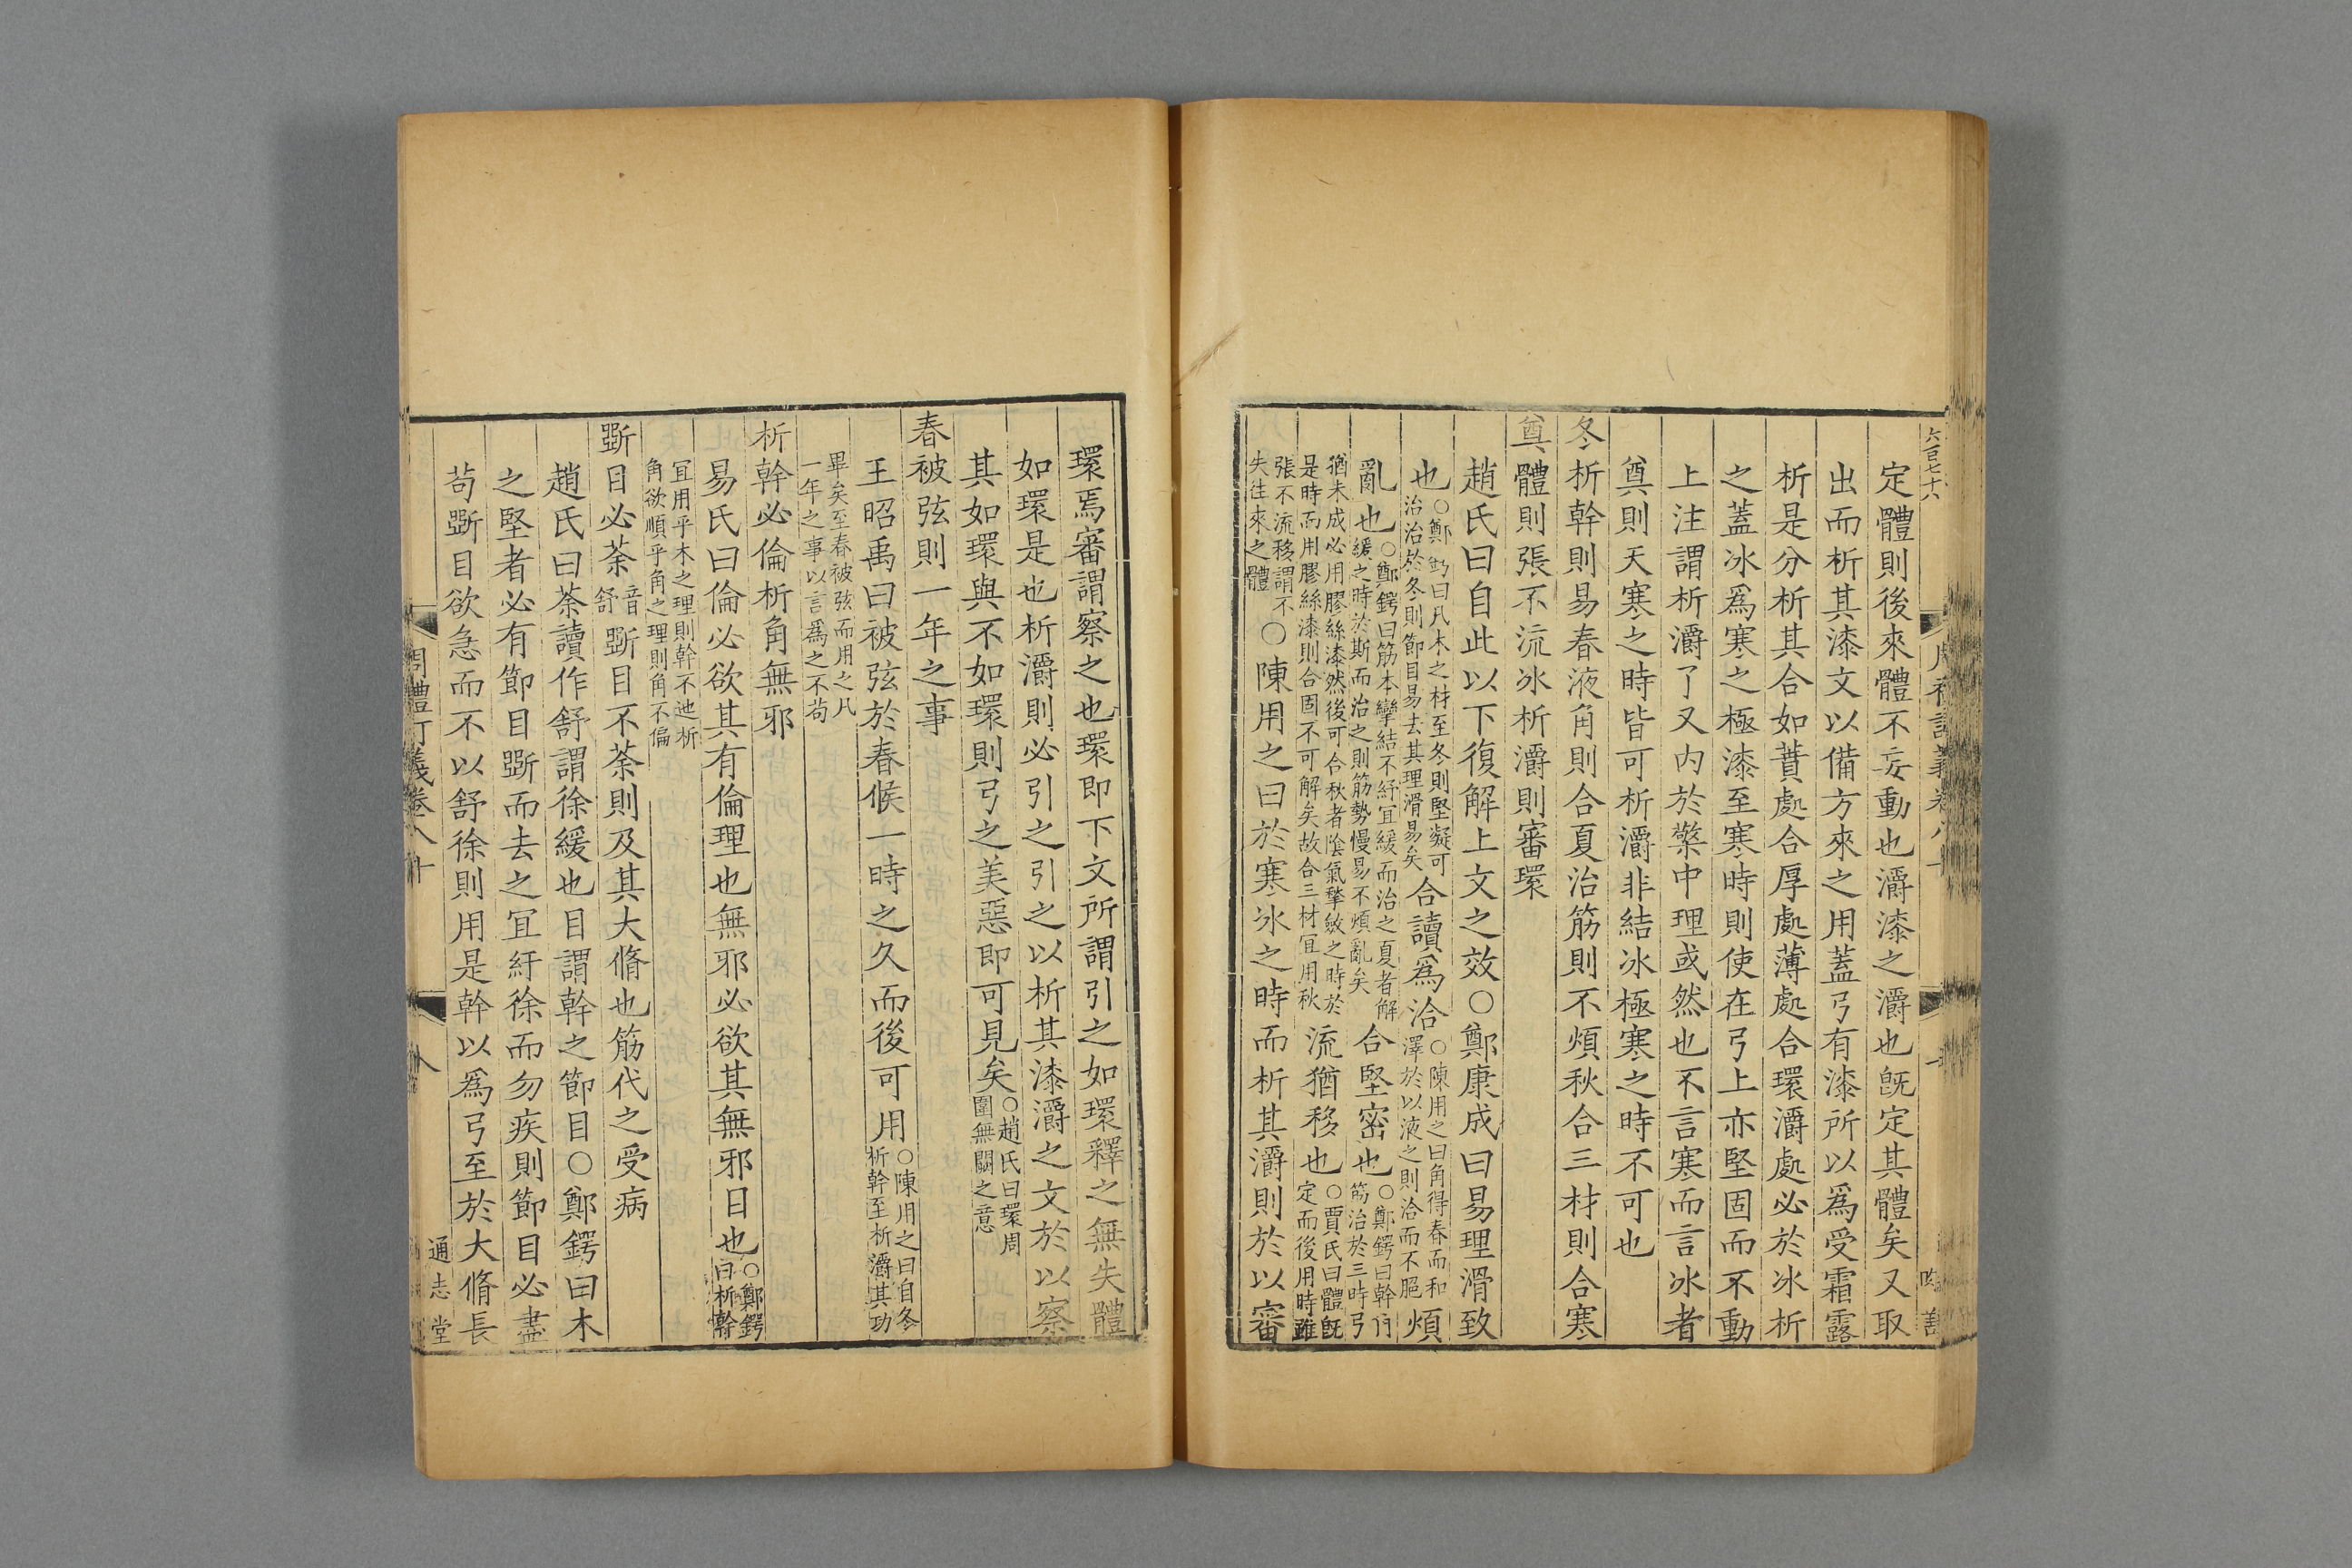 六百七十八
定體則後來體不妄動也灂漆之灂也旣定其體矣又取
出而析其漆文以備方來之用蓋弓有漆所以爲受霜露
析是分析其合如蕡處合厚處薄處合環灂處必於冰析
之蓋冰爲寒之極漆至寒時則使在弓上亦堅固而不動
上注謂析灂了又内於檠中理或然也不言寒而言冰者
奠則天寒之時皆可析灂非結冰極寒之時不可也
冬析幹則易春液角則合夏治筋則不煩秋合三材則合寒
奠體則張不流冰析灂則審環
趙氏曰自此以下復解上文之效○鄭康成曰易理滑致
也○鄭鍔曰凡木之材至冬則堅凝可治治於冬則節目易去其理滑易矣合讀爲洽○陳用之曰角得春而和澤於以液之則洽而不脃煩
亂也○鄭鍔曰筋本攣結不紓宜緩而治之夏者解緩之時於斯而治之則筋勢慢易不煩亂矣合堅密也○鄭鍔曰幹角筋治於三時弓
猶未成必用膠絲漆然後可合秋者陰氣揫斂之時於是時而用膠絲漆則合固不可解矣故合三材宜用秋流猶移也○賈氏曰體旣定而後用時雖
張不流移謂不失往來之體○陳用之曰於寒冰之時而析其灂則於以審
環焉審謂察之也環即下文所謂引之如環釋之無失體
如環是也析灂則必引之引之以析其漆灂之文於以察
其如環與不如環則弓之美惡即可見矣○趙氏曰環周圍無闕之意
春被弦則一年之事
王昭禹曰被弦於春候一時之久而後可用○陳用之曰自冬析幹至析灂其功
畢矣至春被弦而用之凡一年之事以言爲之不苟
析幹必倫析角無邪
易氏曰倫必欲其有倫理也無邪必欲其無邪日也○鄭鍔曰析幹
宜用乎木之理則幹不迆析角欲順乎角之理則角不偏
斲目必荼音舒斲目不荼則及其大脩也筋代之受病
趙氏曰荼讀作舒謂徐緩也目謂幹之節目○鄭鍔曰木
之堅者必有節目斲而去之宜紓徐而勿疾則節目必盡
苟斲目欲急而不以舒徐則用是幹以爲弓至於大脩長
周禮訂義卷八十
八
通志堂